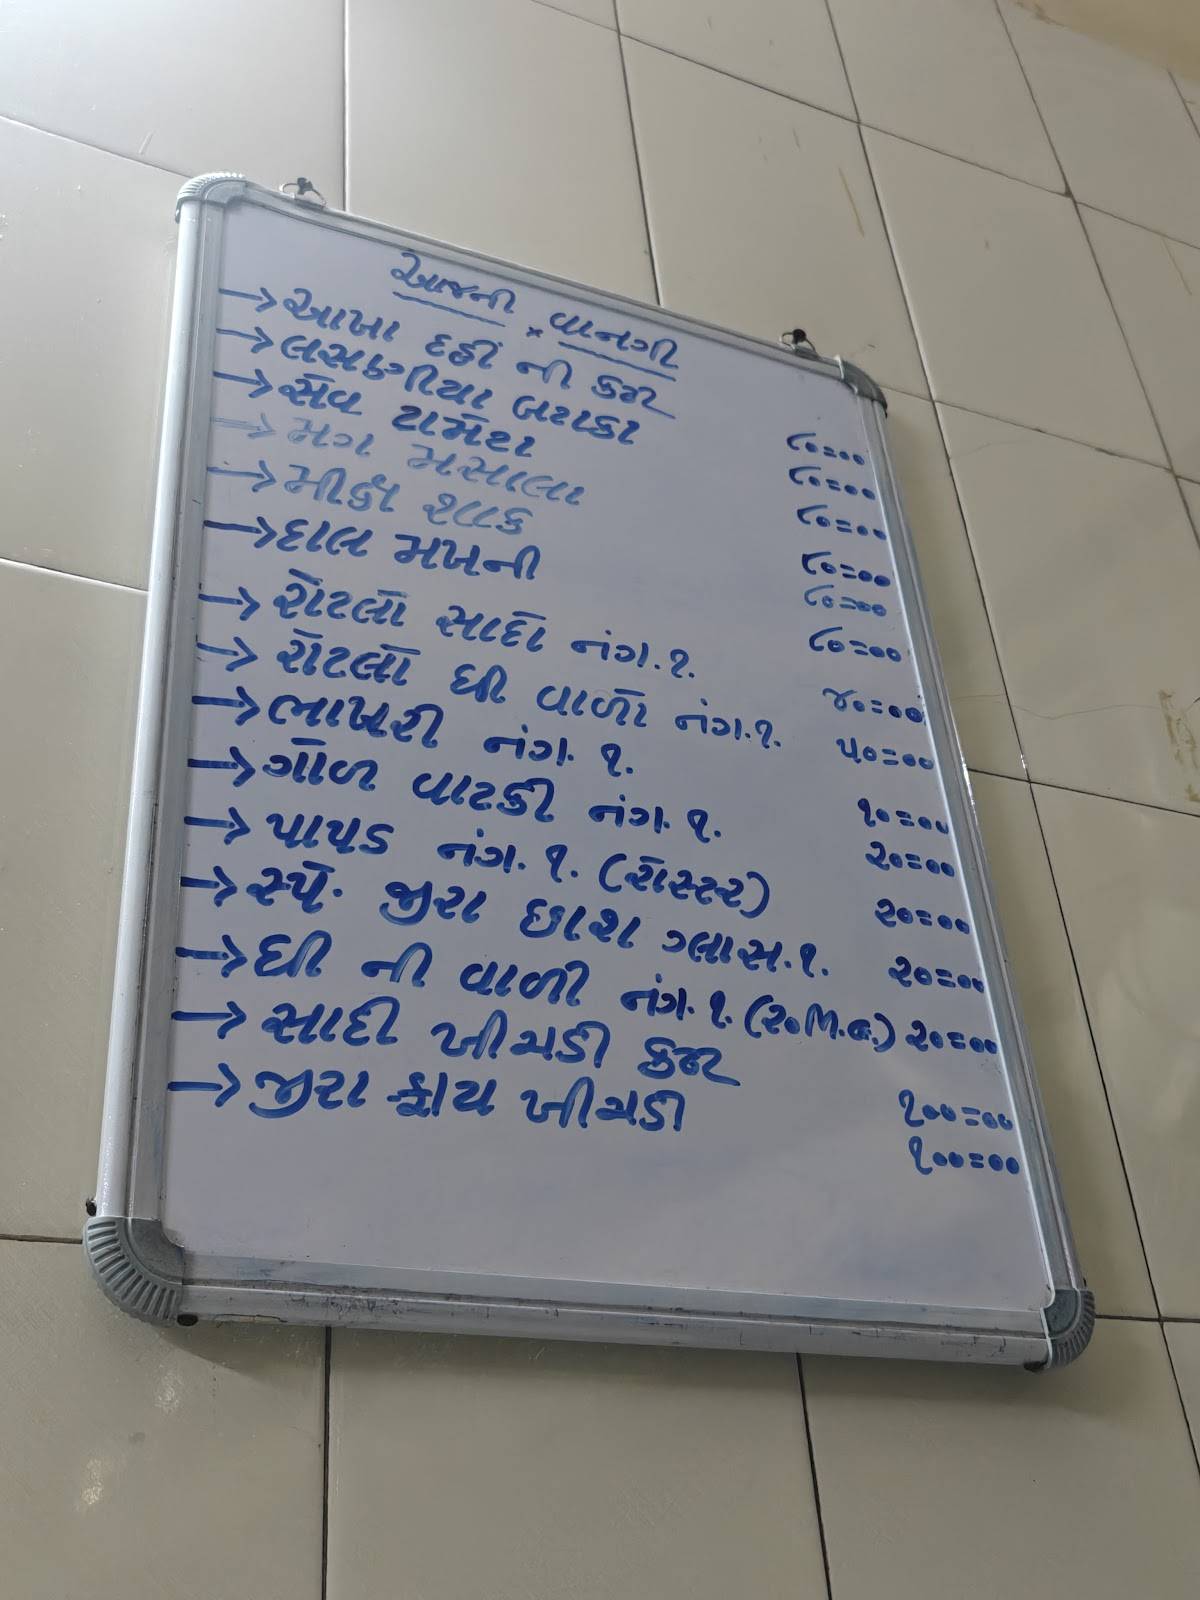 આજની × વાનગી
→આખા દહીં ની કઢી ૮૦=૦૦
→લસણીયા બટાકા ૮૦=૦૦
→સેવ ટામેટા ૮૦=૦૦
→મગ મસાલા ૮૦=૦૦
→મીક્ષ શાક ૮૦=૦૦
→દાલ મખની ૮૦=૦૦
→રોટલો સાદો નંગ.૧. ૪૦=૦૦
→રોટલો ઘી વાળો નંગ.૧. ૫૦=૦૦
→ભાખરી નંગ.૧. ૧૦=૦૦
→ગોળ વાટકી નંગ.૧. ૨૦=૦૦
→પાપડ નંગ.૧. (રોસ્ટર) ૨૦=૦૦
→સ્પે. જીરા છાશ ગ્લાસ.૧. ૨૦=૦૦
→ઘી ની વાળી નંગ.૧.(૨૦M.G.) ૨૦=૦૦
→સાદી ખીચડી કઢી ૧૦૦=૦૦
→જીરા ફ્રાય ખીચડી ૧૦૦=૦૦